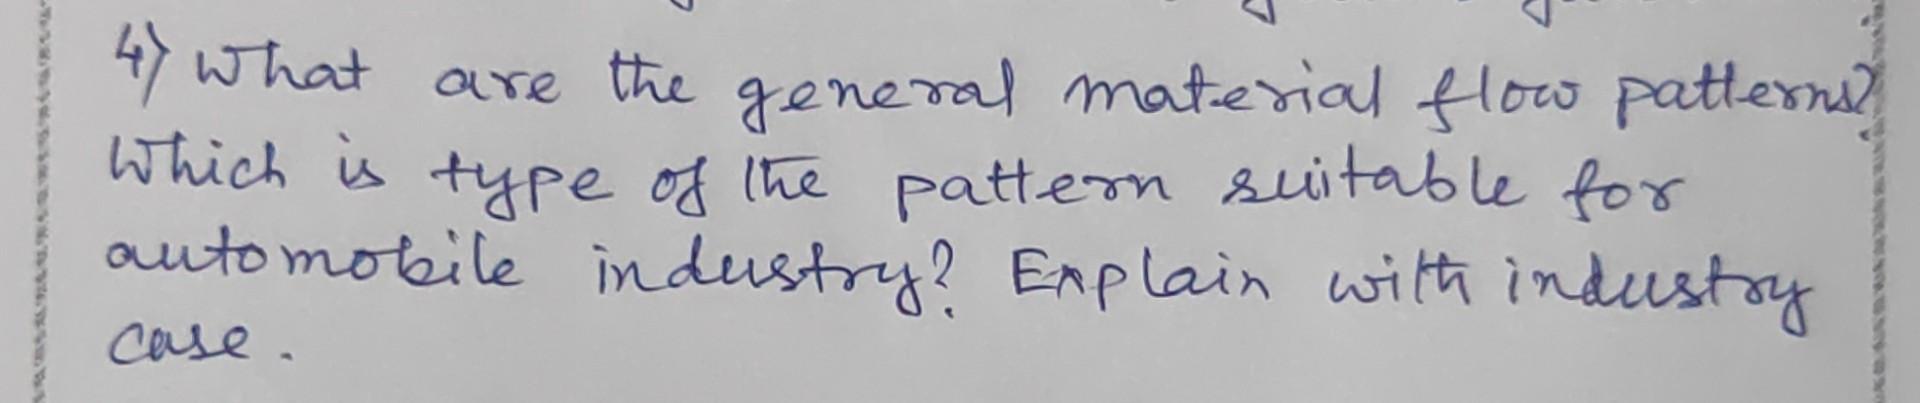 4) What are the general material flow patterns?
Which is type of the pattern suitable for
automobile industry? Explain with industry
case.